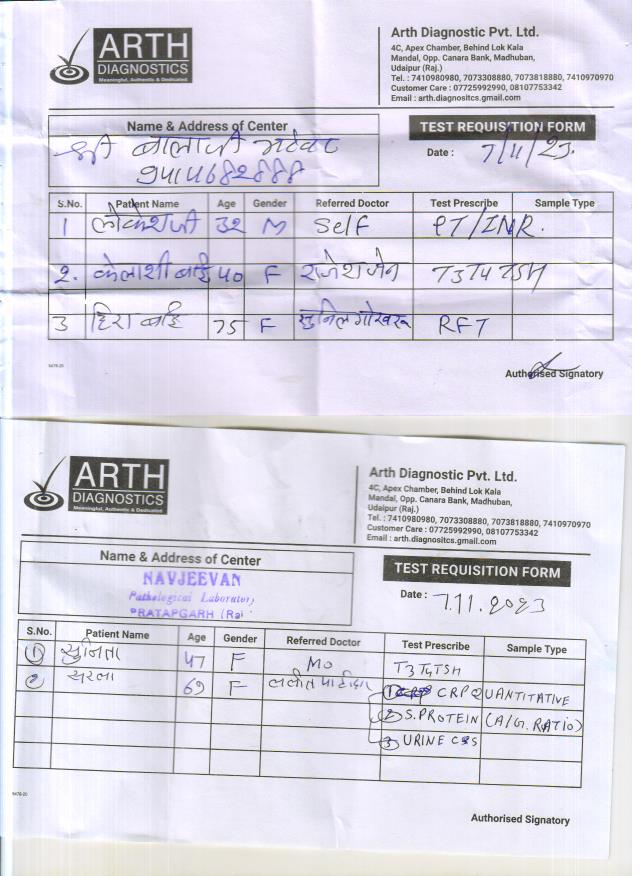 ARTH
DIAGNOSTICS
Meaningful, Authentic & Dedicated
Arth Diagnostic Pvt. Ltd.
4C, Apex Chamber, Behind Lok Kala
Mandal, Opp. Canara Bank, Madhuban,
Udaipur (Raj.)
Tel. : 7410980980, 7073308880, 7073818880, 7410970970
Customer Care : 07725992990, 08107753342
Email : arth.diagnositcs.gmail.com
Name & Address of Center
TEST REQUISITION FORM
श्री बालाजी
Date : 7/11/23
S.No. Patient Name Age Gender Referred Doctor Test Prescribe Sample Type
1 लोकेशजी 32 M Self PT/INR.
2. केलाशी बाई 40 F राजेश जैन T3T4TSH
3 हिरा बाई 75 F सुनिल गोखरू RFT
9478-20
Authorised Signatory
ARTH
DIAGNOSTICS
Meaningful, Authentic & Dedicated
Arth Diagnostic Pvt. Ltd.
4C, Apex Chamber, Behind Lok Kala
Mandal, Opp. Canara Bank, Madhuban,
Udaipur (Raj.)
Tel. : 7410980980, 7073308880, 7073818880, 7410970970
Customer Care : 07725992990, 08107753342
Email : arth.diagnositcs.gmail.com
Name & Address of Center
TEST REQUISITION FORM
NAVJEEVAN
Pathological Laboratory,
PRATAPGARH (Raj
Date : 7.11.2023
S.No. Patient Name Age Gender Referred Doctor Test Prescribe Sample Type
1 सुनिता 47 F MO T3T4TSH
2 सरला 69 F ललीत पाटीदार 1 CRP QUANTITATIVE
2 S.PROTEIN (A/G. RATIO)
3 URINE C&S
9478-20
Authorised Signatory